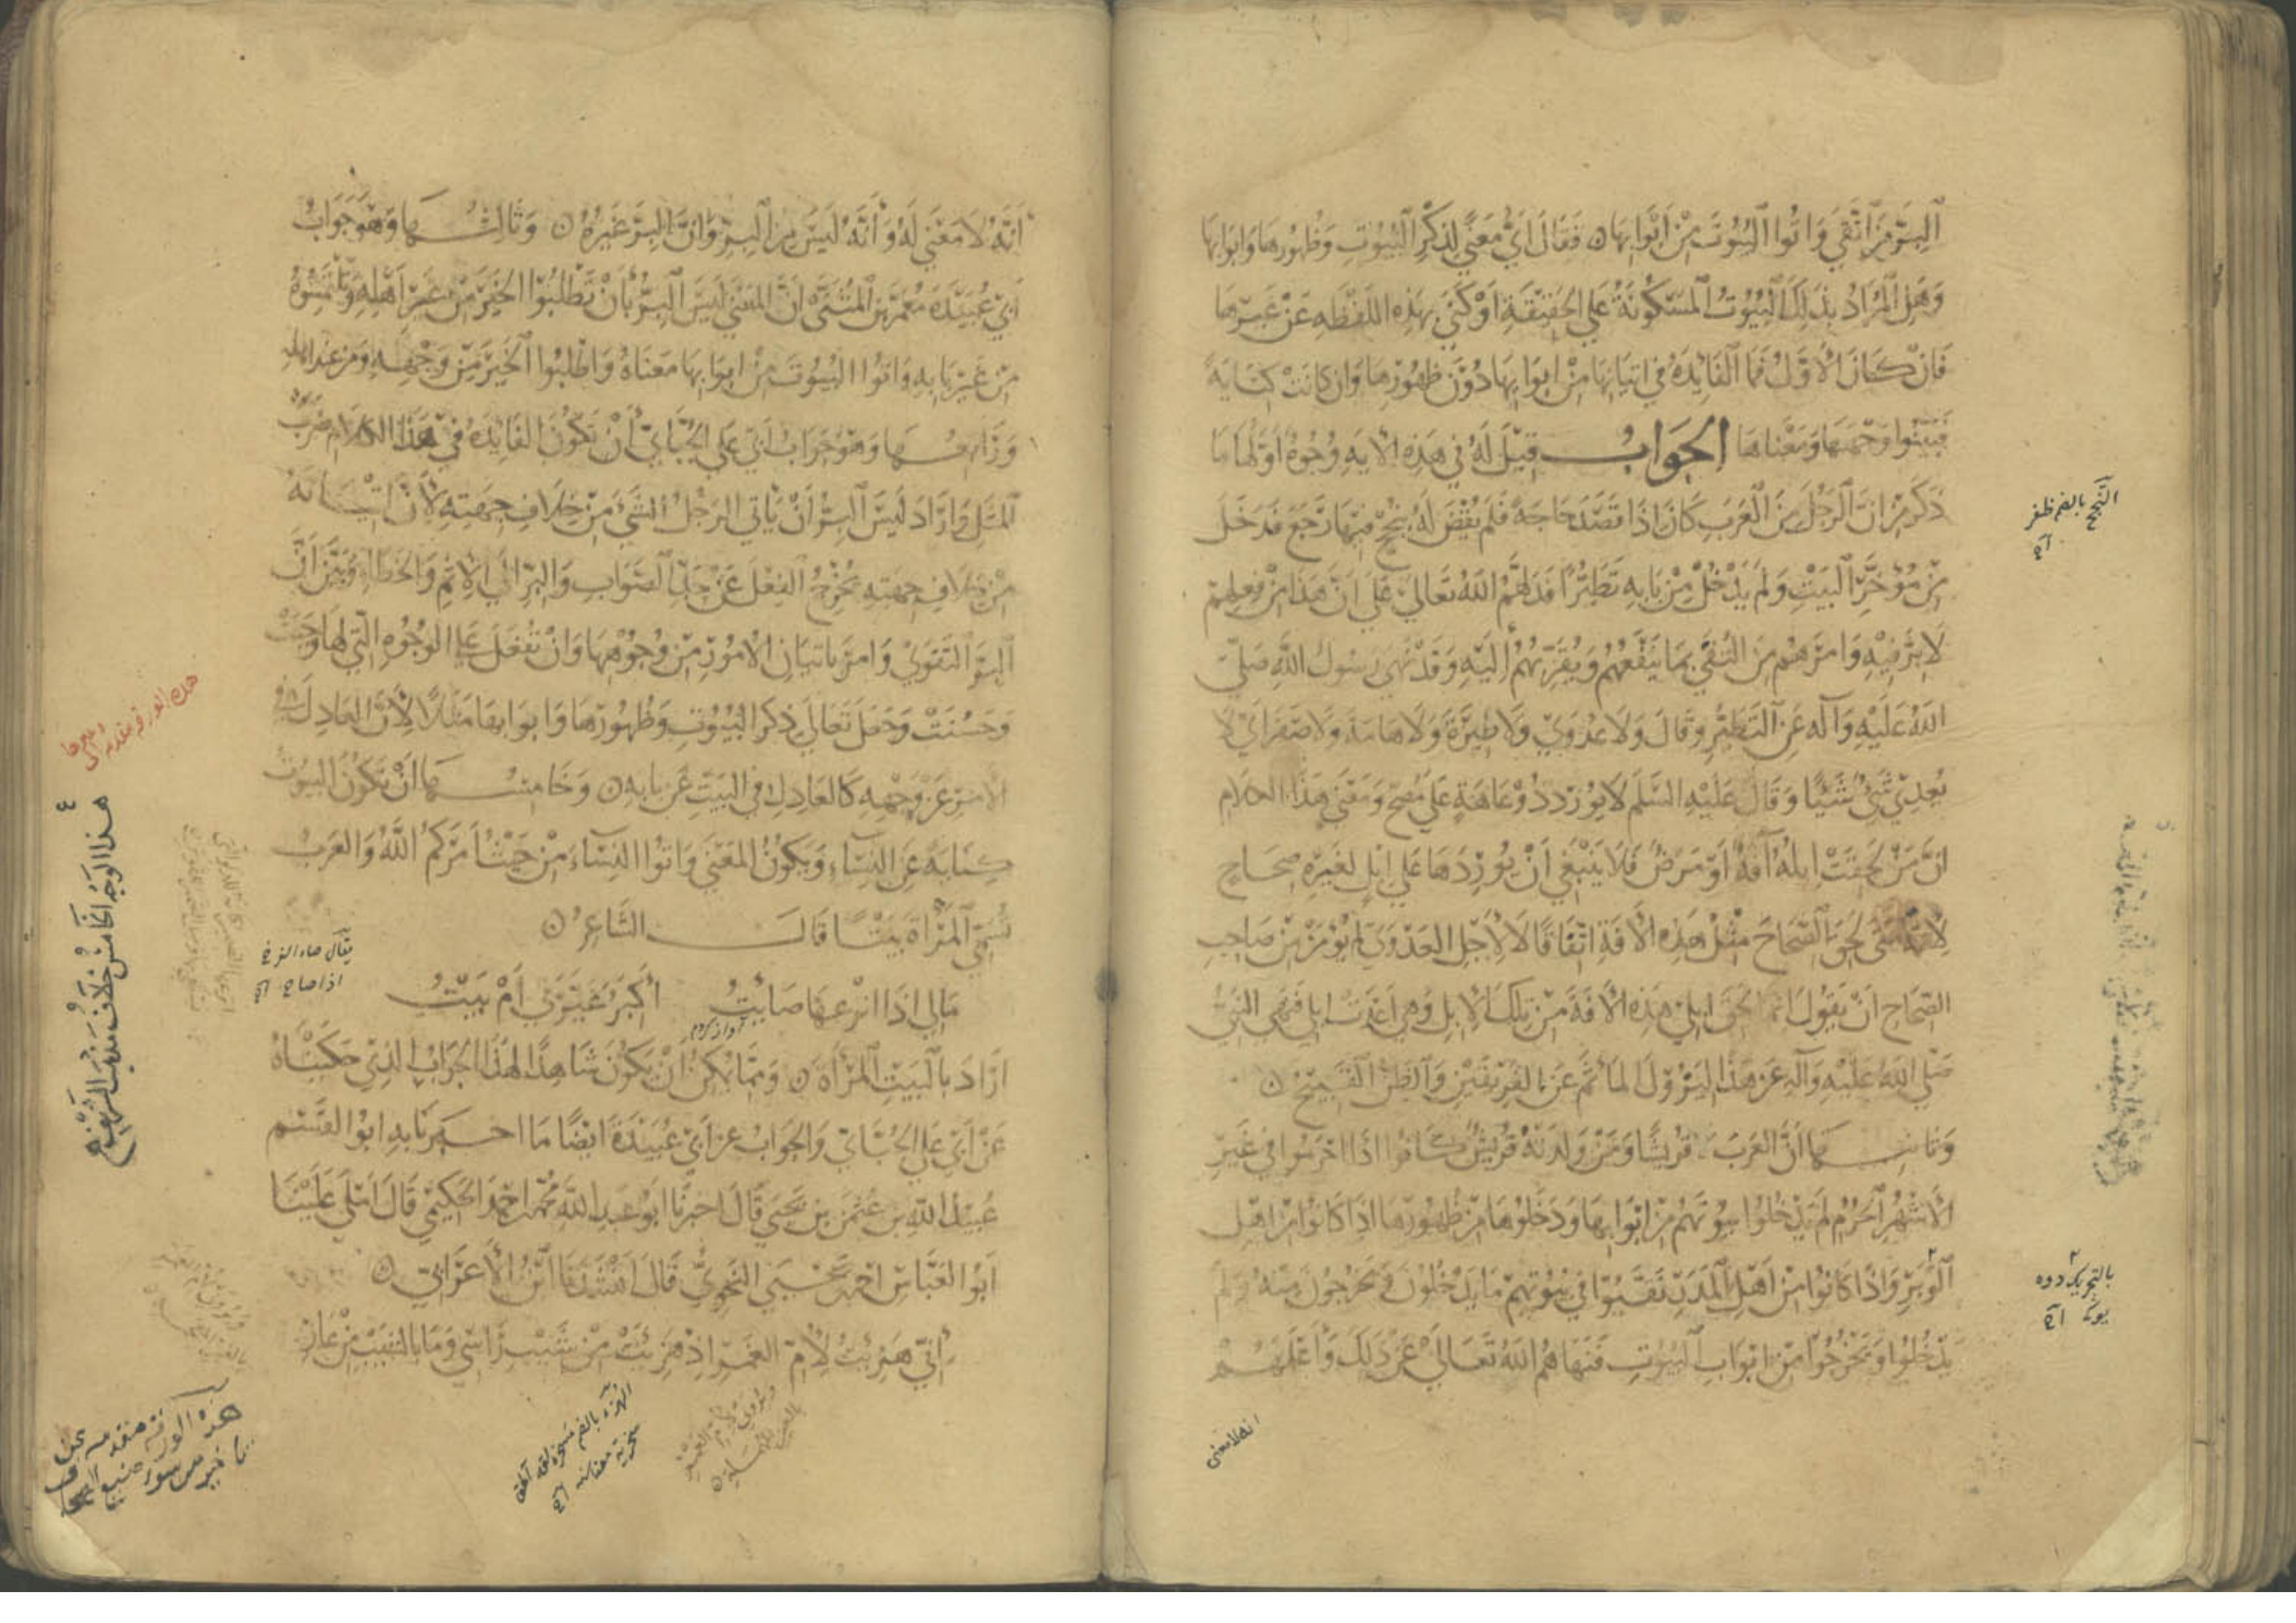 البر من اتقى واتوا البيوت من ابوابها ن فقال اي معنى لذكر البيوت وظهورها وابوابها
وهل المراد بذلك البيوت المسكونة على الحقيقة او كنى بهذه اللفظه عن غيرها
فان كان الاول فما الفائده في اتيانها من ابوابها دون ظهورها وان كانت كناية
فبينوا وجهها ومعناها الجواب قيل له في هذه الايه وجوه اولها ما
ذكر من ان الرجل من العرب كان اذا قصد حاجة فلم يقض له ينجح فيها رجع فدخل
من مؤخر البيت ولم يدخل من بابه تطيرا فدلهم الله تعالى على ان هذا من فعلهم
لا بر فيه وامرهم من التقى بما ينفعهم ويقربهم اليه وقد نهى رسول الله صلى
الله عليه وآله عن التطير وقال ولا عدوى ولا طيرة ولا هامة ولا صفر اي لا
يعدي شيء شيئا وقال عليه السلم لا يورد ذو عاهة على مصح ومعنى هذا الكلام
ان من لحقت ابله آفة او مرض فلا ينبغي ان يوردها على ابل لغيره صحاح
لانه متى لحق بالصحاح مثل هذه الافة اتفاقا لا لاجل العدوى لم يؤمن من صاحب
الصحاح ان يقول انما لحق ابلي هذه الافة من تلك الابل وهي اعدت ابلي فنهى النبي
صلى الله عليه وآله عن هذا ليزول المأثم عن الفريقين والظن القبيح ن
وثانيها ان العرب قريشا ومن ولدته قريش كانوا اذا احرموا في غير
الاشهر الحرم لم يدخلوا بيوتهم من ابوابها ودخلوها من ظهورها اذا كانوا من اهل
الوبر واذا كانوا من اهل المدر نقبوا في بيوتهم ما يدخلون ويخرجون منه ولم
يدخلوا ويخرجوا من ابواب البيوت فنهاهم الله تعالى عن ذلك واعلمهم
النجح بالضم ظفر
بالتحريك
انه لا معنى
انه لا معنى له وانه ليس من البر وان البر غيره ن وثالثها وهو جواب
ابي عبيدة معمر بن المثنى ان المعنى ليس البر بان تطلبوا الخير من غير اهله وتلتمسوه
من غير بابه واتوا البيوت من ابوابها معناه واطلبوا الخير من وجهه ومن عند اهله
ورابعها وهو جواب ابي علي الجبائي ان تكون الفائده في هذا الكلام ضرب
المثل واراد ليس البر ان ياتي الرجل الشيء من خلاف جهته لان اتيانه
من خلاف جهته يخرج الفعل عن حد الصواب والبر الى الاثم والخطا وبين ان
البر التقوى وامر باتيان الامور من وجوهها وان تفعل على الوجوه التي لها وجبت
وحسنت وجعل تعالى ذكر البيوت وظهورها وابوابها مثلا لان العادل في
الامر عن وجهه كالعادل في البيت عن بابه ن وخامسها ان تكون البيوت
كناية عن النساء ويكون المعنى واتوا النساء من حيث امركم الله والعرب
تسمي المرأة بيتا قال الشاعر ن
مالي اذا انزعها صايت اكبر غيرني ام بيت
اراد بالبيت المرأة ن ومما يمكن ان يكون شاهدا لهذا الجواب الذي حكيناه
عن ابي علي الجبائي والجواب عن ابي عبيدة ايضا ما اخبرنا به ابو القسم
عبيد الله بن عثمن بن يحيى قال اخبرنا ابو عبد الله محمد بن احمد الحكيمي قال املى علينا
ابو العباس احمد بن يحيى النحوي قال انشدنا ابن الاعرابي ن
اني هزئت لام الغمر اذ هزئت من شيب راسي وما بالشيب من عار
يقال صاء الفرخ
اذا صاح
هذه الورقة مقدمة
هذا الوجه الخامس خلاف مذهب الشريف
هذه الورقة مقدمه عن
تاخير من سوء صنيع الصحاف